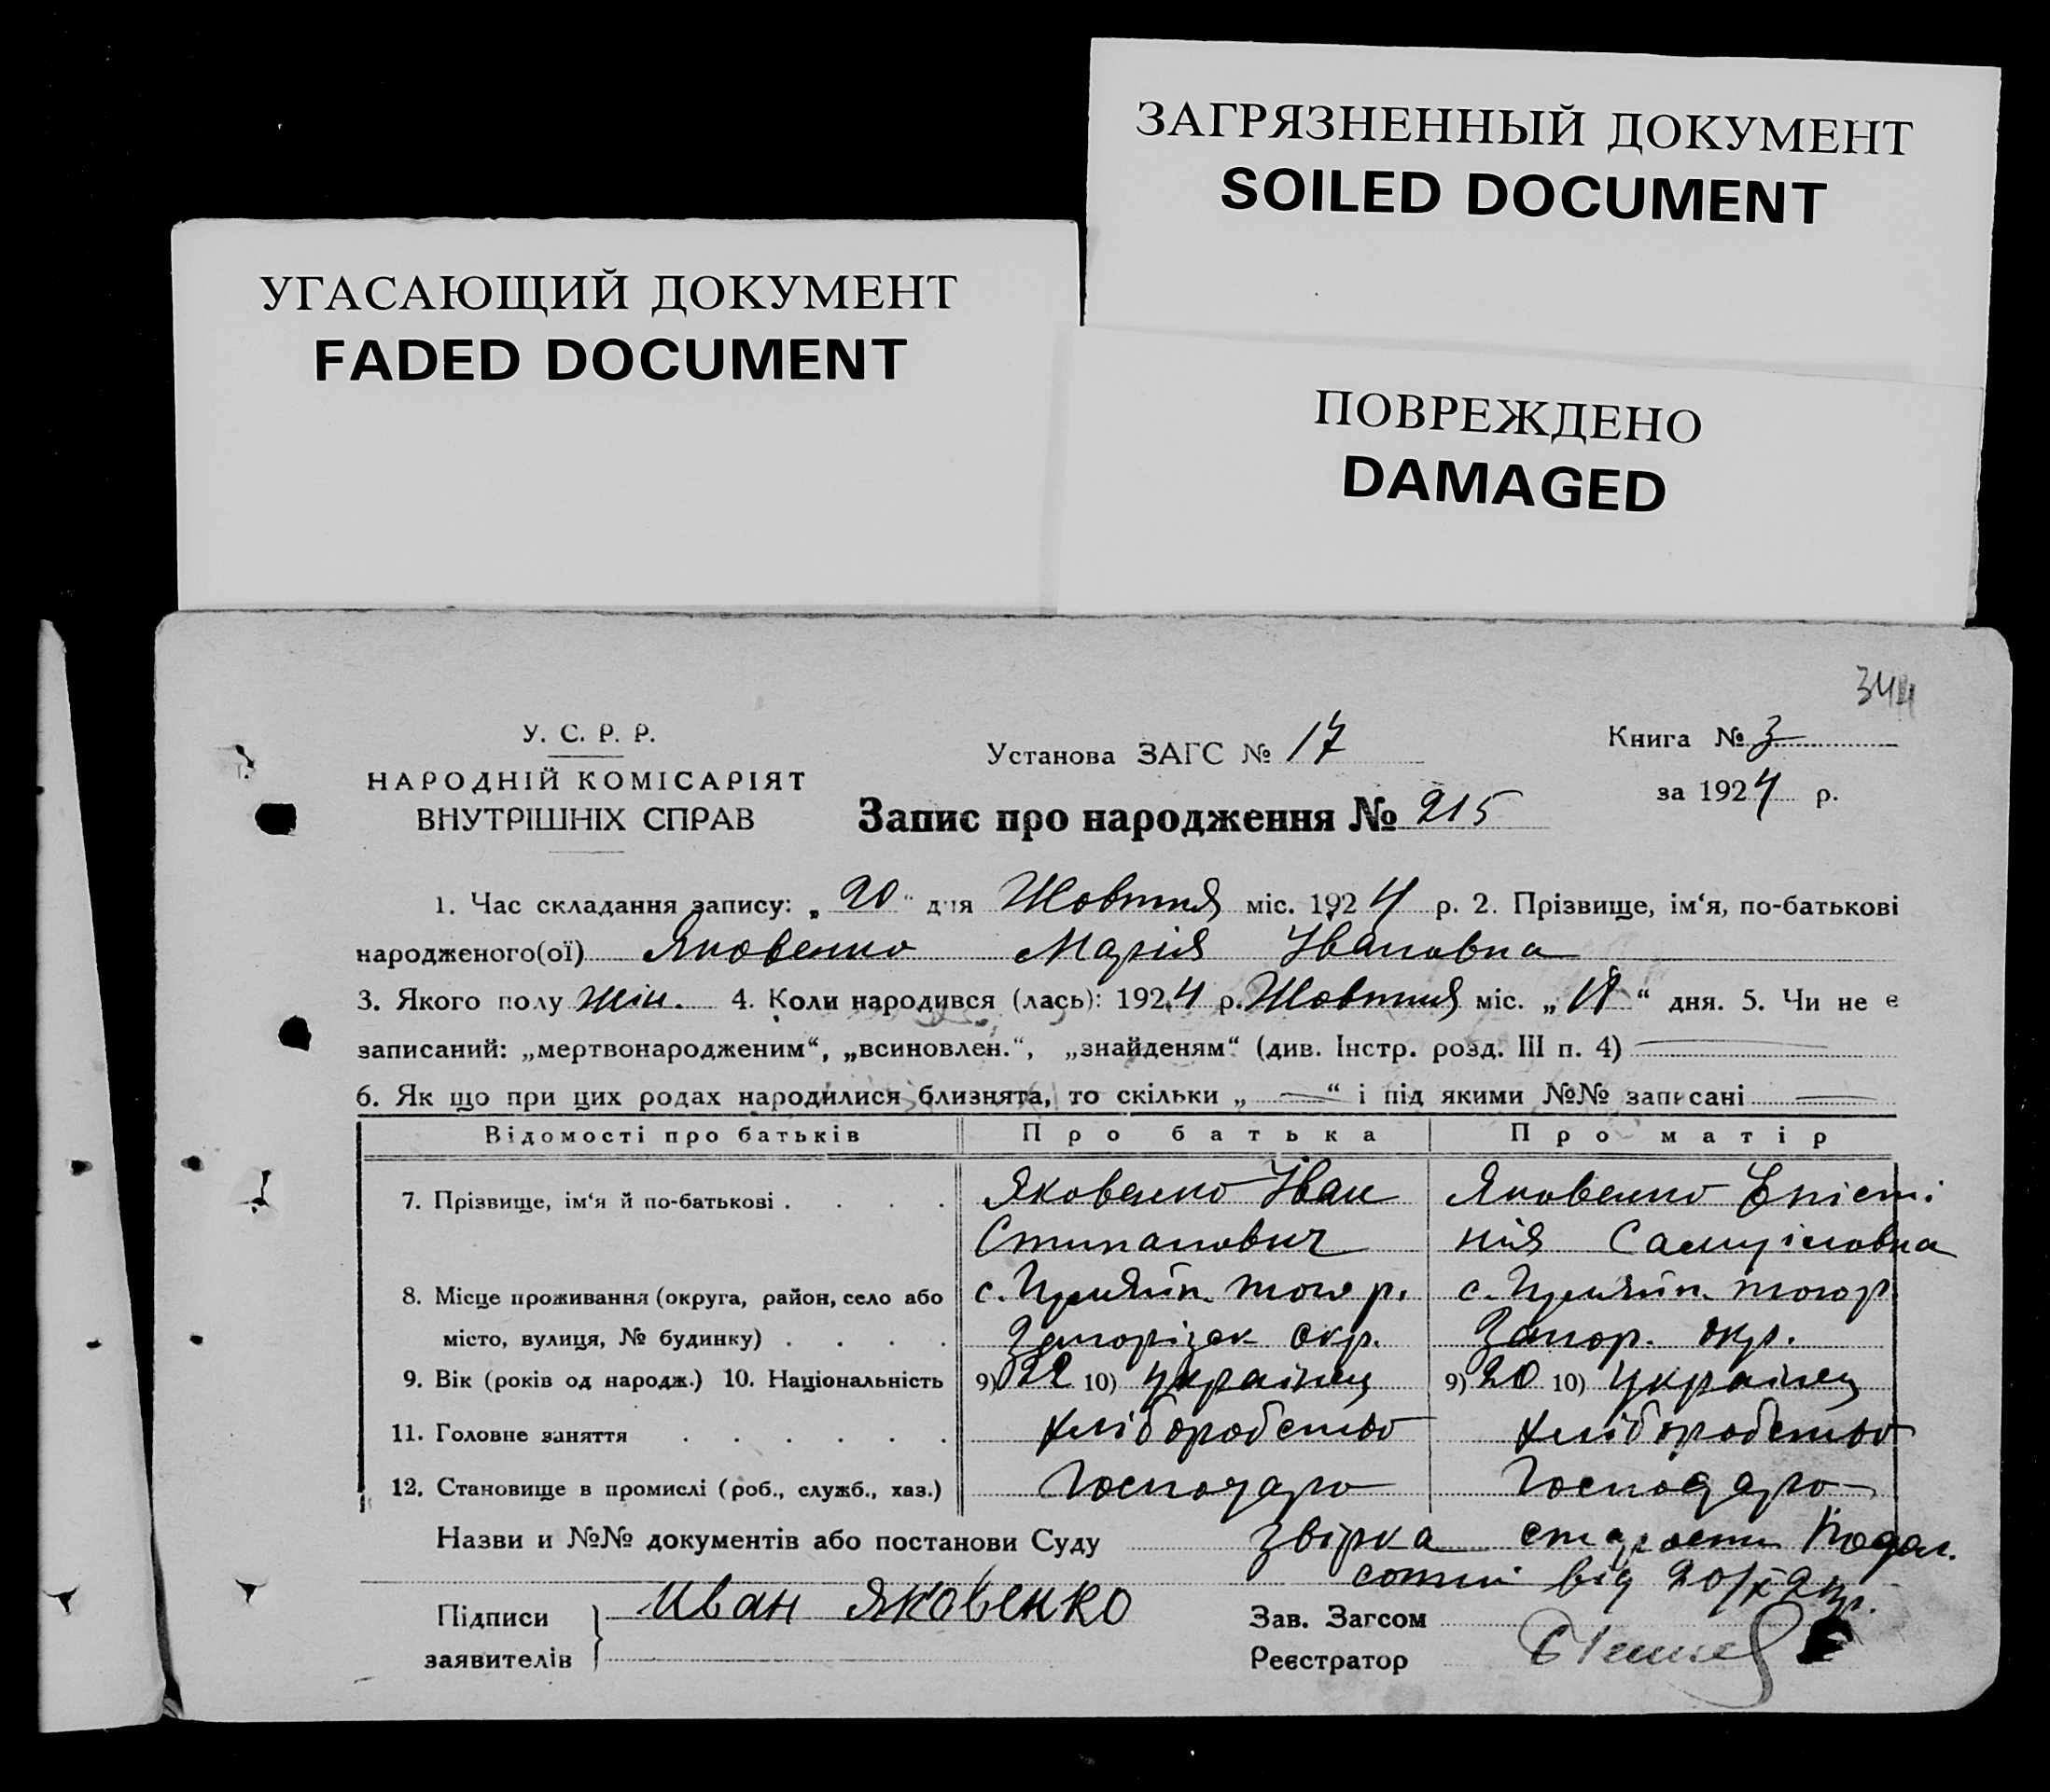 ЗАГРЯЗНЕННЫЙ ДОКУМЕНТ
SOILED DOCUMENT
УГАСАЮЩИЙ ДОКУМЕНТ
FADED DOCUMENT
ПОВРЕЖДЕНО
DAMAGED
344
У. С. Р. Р.
НАРОДНІЙ КОМІСАРІЯТ
ВНУТРІШНІХ СПРАВ
Установа ЗАГС № 17
Книга № 3
за 1924 р.
Запис про народження № 215
1. Час складання запису: „20" дня Жовтня міс. 1924 р. 2. Прізвище, ім‘я, по-батькові
народженого(ої) Яковенко Марія Івановна
3. Якого полу жін. 4. Коли народився (лась): 1924 р. Жовтня міс. „ “ дня. 5. Чи не є
записаний: „мертвонародженим“, „всиновлен.“, „знайденям“ (див. Інстр. розд. III п. 4)
6. Як що при цих родах народилися близнята, то скільки „ — “ і під якими №№ записані —
Відомості про батьків Про батька Про матір
7. Прізвище, ім‘я й по-батькові . . . . Яковенко Іван Яковенко Єпісти
Стипанович нія Самуіловна
8. Місце проживання (округа, район, село або с. р. с.
місто, вулиця, № будинку) . . . . Запорізьк окр. Запор. окр.
9. Вік (років од народж.) 10. Національність 9) 22 10) Українец 9) 20 10) Українец
11. Головне заняття . . . . . . хліборобство хліборобство
12. Становище в промислі (роб., служб., хаз.) Господарю Господарю
Назви и №№ документів або постанови Суду звірка старости
сотні від 20/X 24 р.
Підписи Иван Яковенко Зав. Загсом
заявителів Реєстратор